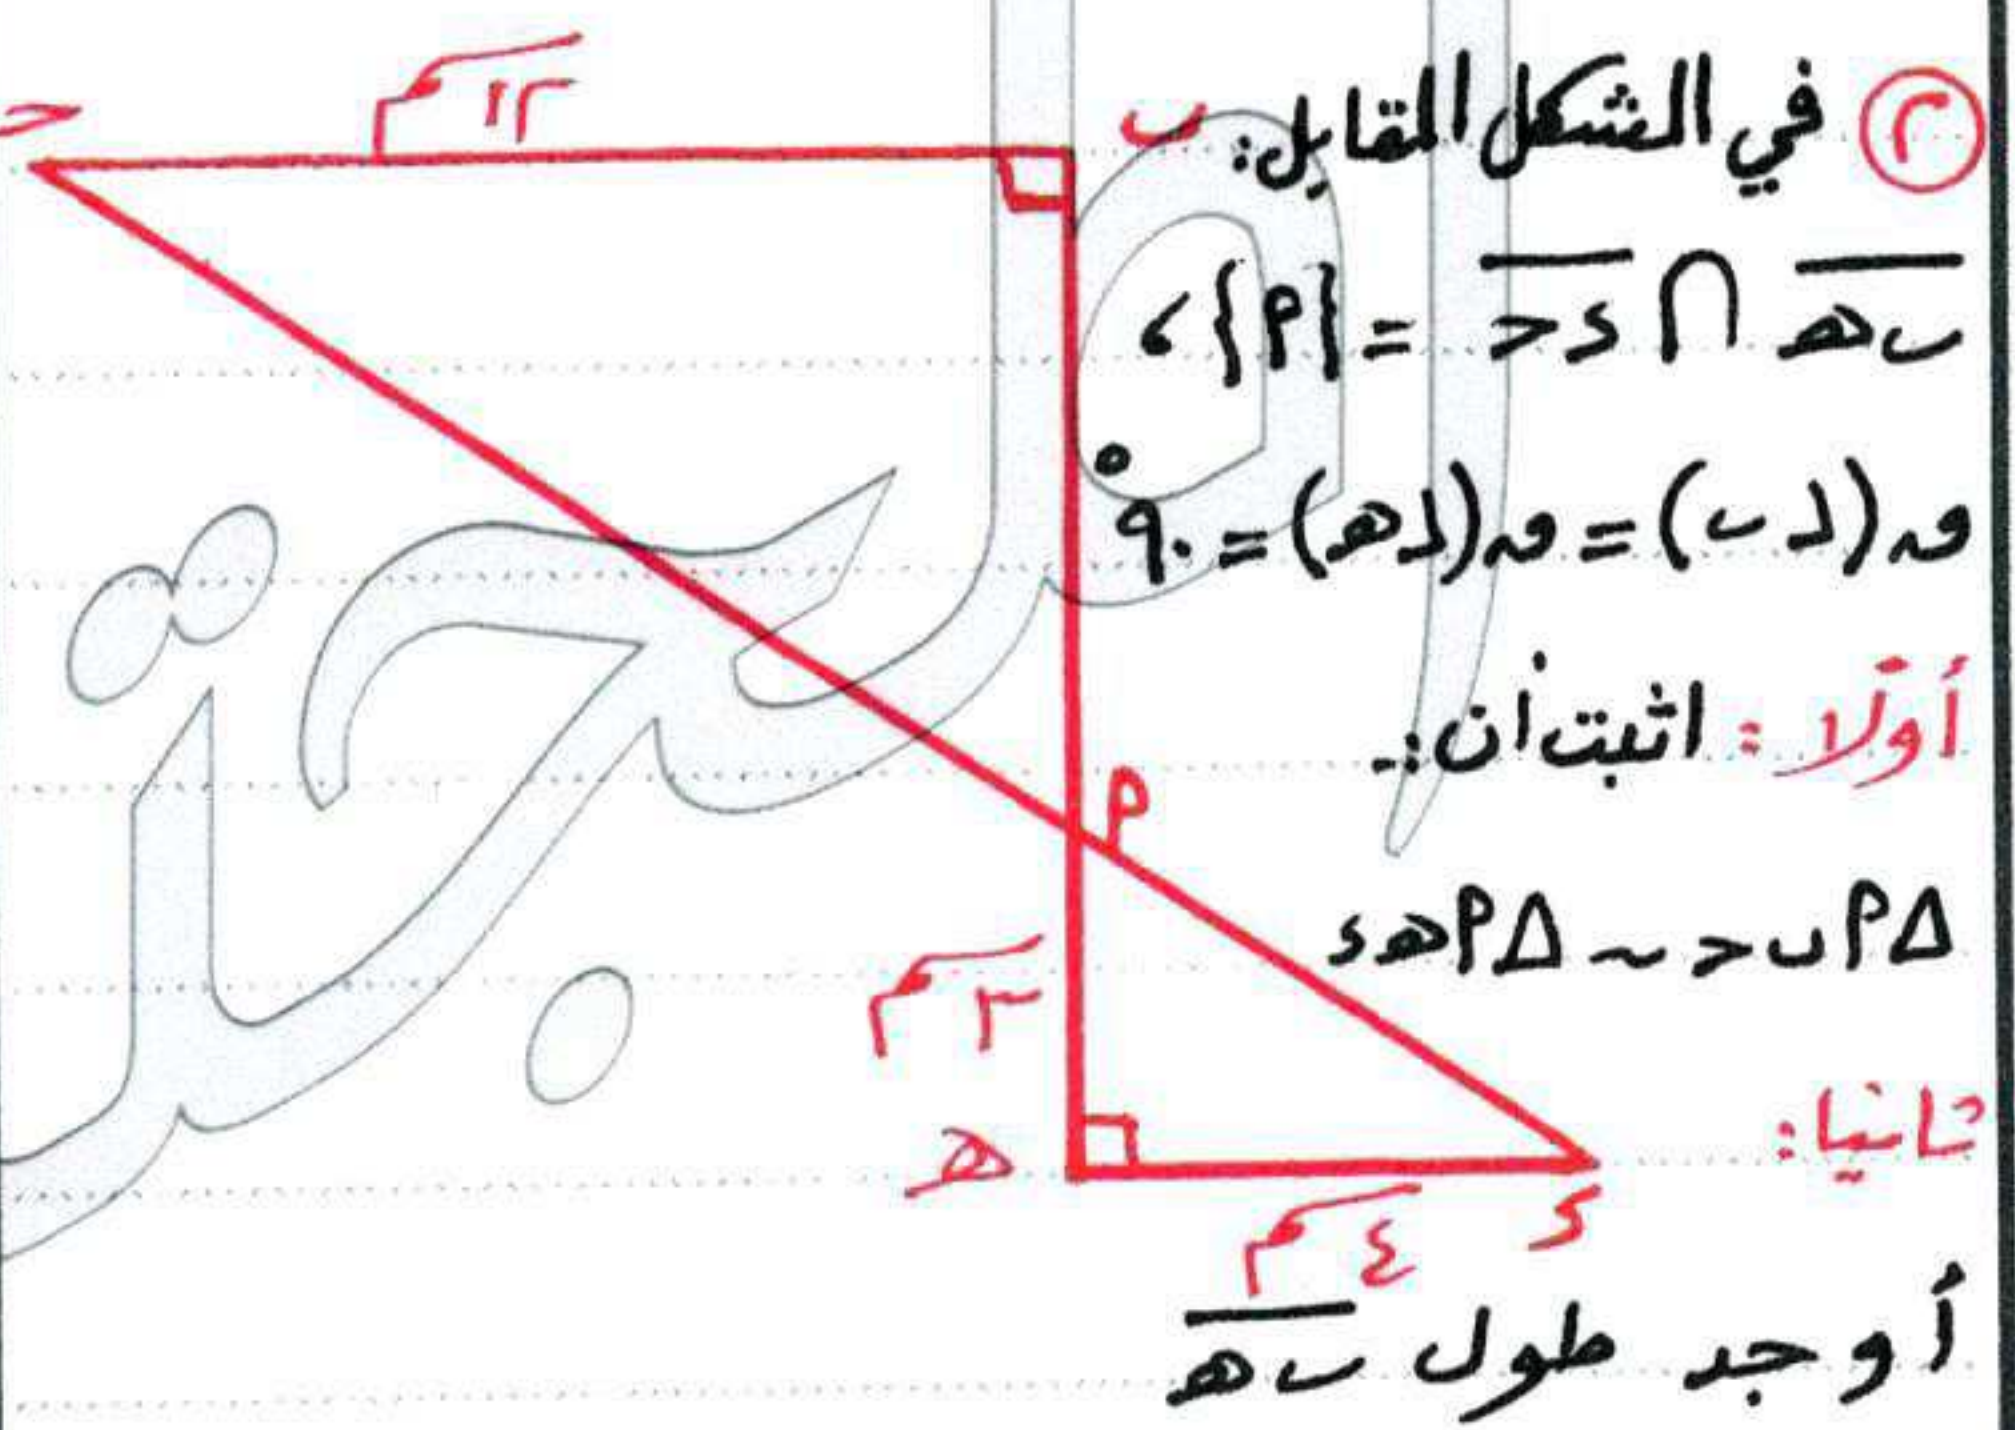 ٢ في الشكل المقابل:
ب هـ ∩ د حـ = {م}،
ق(∠ب) = ق(∠هـ) = ٩٠°
أوّلا : اثبت أن:-
Δ م ب حـ ~ Δ م هـ د
ثانيا:
أوجد طول ب هـ
حـ
١٢ سم
ب
م
٣ سم
هـ
٤ سم
د